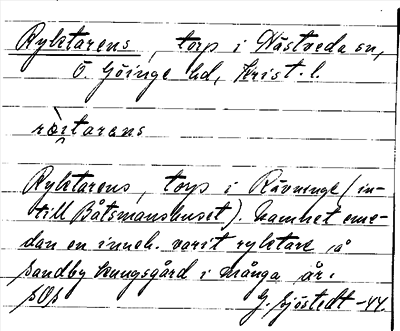 Ryktarens, torp i Västveda sn,
Ö. Göinge hd, Krist. l.
ròetarens
Ryktarens, torp i Rävninge (in-
till Båtsmanshuset). Namnet eme-
dan en inneh. varit ryktare å
Sandby kungsgård i många år.
G. Sjöstedt -44.